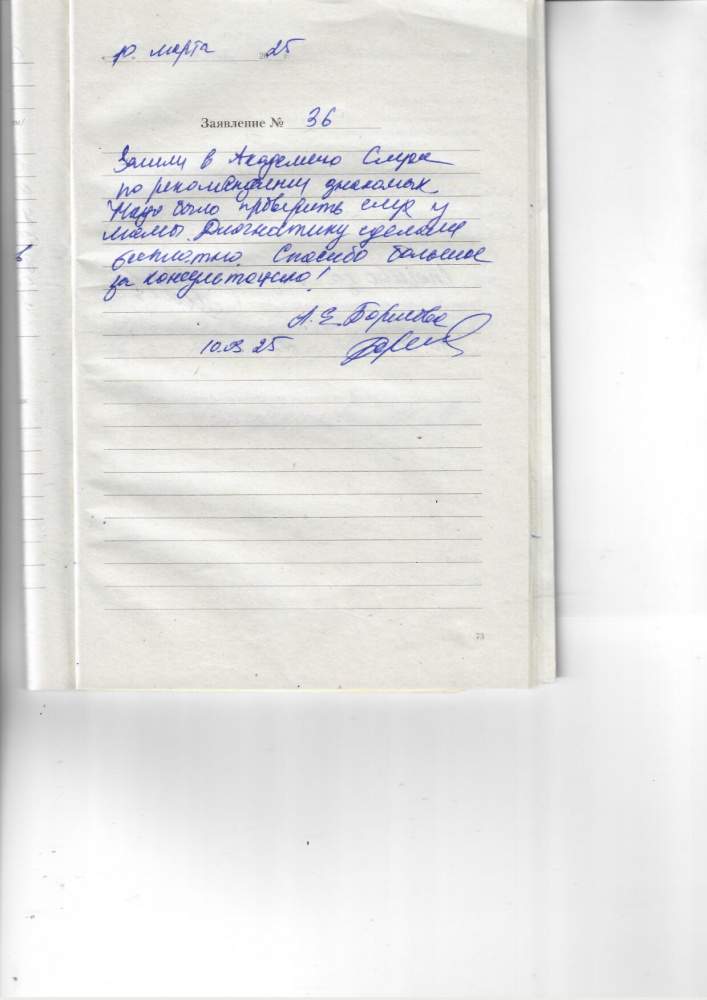 10. марта 2025 г.
Заявление № 36
Зашли в Академию Слуха
по рекомендации знакомых.
Надо было проверить слух у
мамы. Диагностику сделали
бесплатно. Спасибо большое
за консультацию!
А. Е. Борисова
10.03.25
73